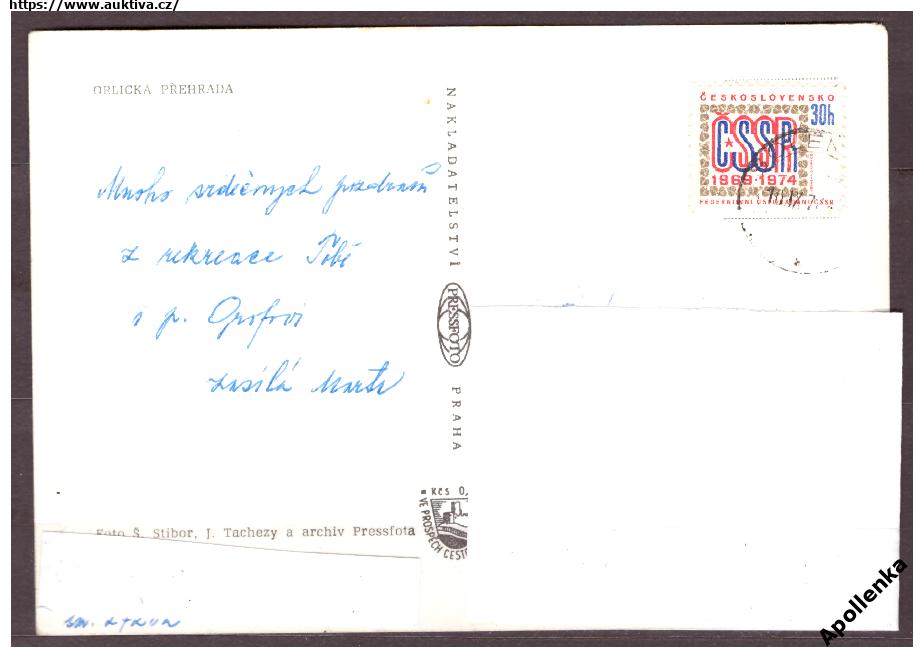 https://www.auktiva.cz/
ORLICKÁ PŘEHRADA
Mnoho srdečných pozdravů
z rekreace Tobě
i p.
zasílá Marta
NAKLADATELSTVÍ PRESSFOTO PRAHA
ČESKOSLOVENSKO
30h
ČSSR
1969·1974
FEDERATIVNÍ USPOŘÁDÁNÍ ČSSR
Kčs 0,
VE PROSPĚCH CEST
Foto Š. Stibor, J. Tachezy a archiv Pressfota
Apollenka